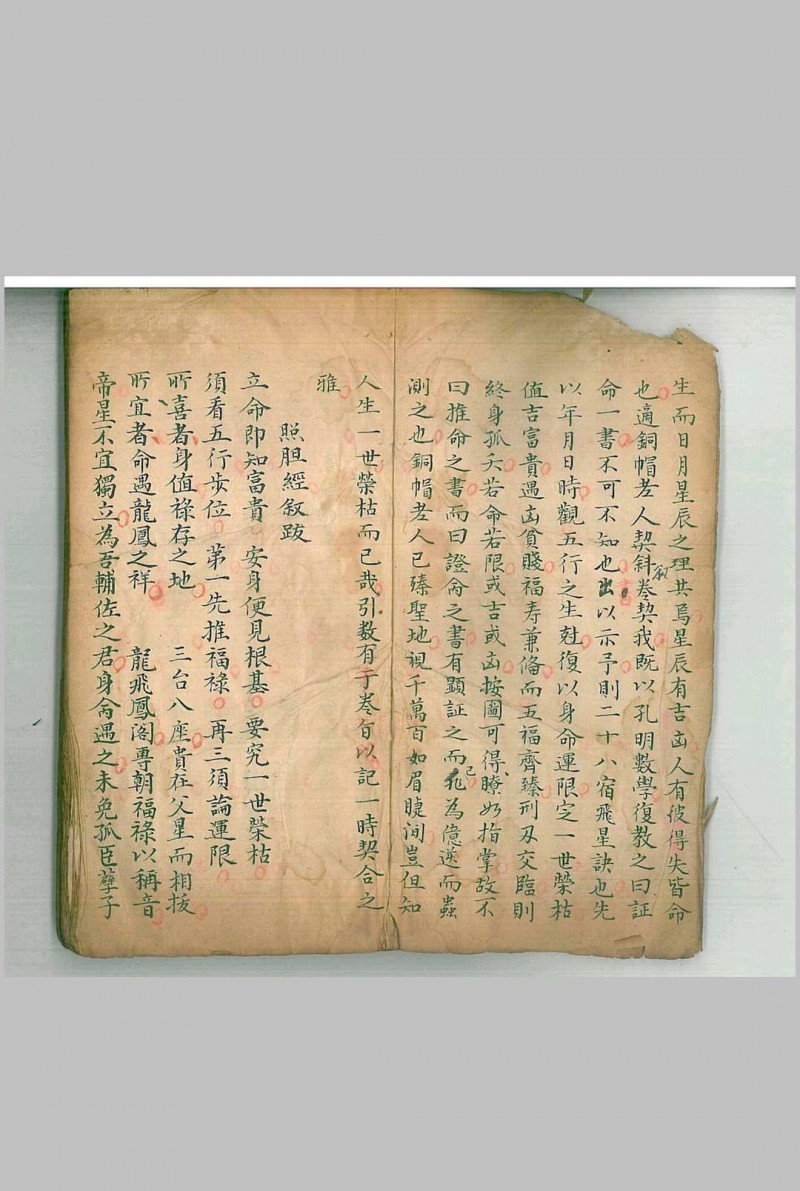 生而日月星辰之理其焉星辰有吉凶人有彼得失皆命
也適銅帽老人契斜叙卷契我既以孔明數學復教之曰証
命一書不可不知也出以示予則二十八宿飛星訣也先
以年月日時觀五行之生尅復以身命運限定一世榮枯
值吉富貴遇凶貧賤福寿兼俻而五福齊臻刑刄交臨則
終身孤夭若命若限或吉或凶按圖可得瞭如指掌故不
曰推命之書而曰證命之書有顕証之而已非為億逆而蟲
測之也銅帽老人已臻聖地視千萬百如眉睫间豈但知
人生一世榮枯而已哉引数有于卷旨以記一時契合之
雅
照胆經叙跋
立命即知富貴 安身便見根基 要究一世榮枯
須看五行步位 第一先推福祿 再三須論運限
所喜者身值祿存之地 三台八座貴在父星而相扳
所宜者命遇龍鳳之祥 龍飛鳳阁專朝福祿以稱音
帝星不宜獨立為吾輔佐之君身命遇之未免孤臣孽子